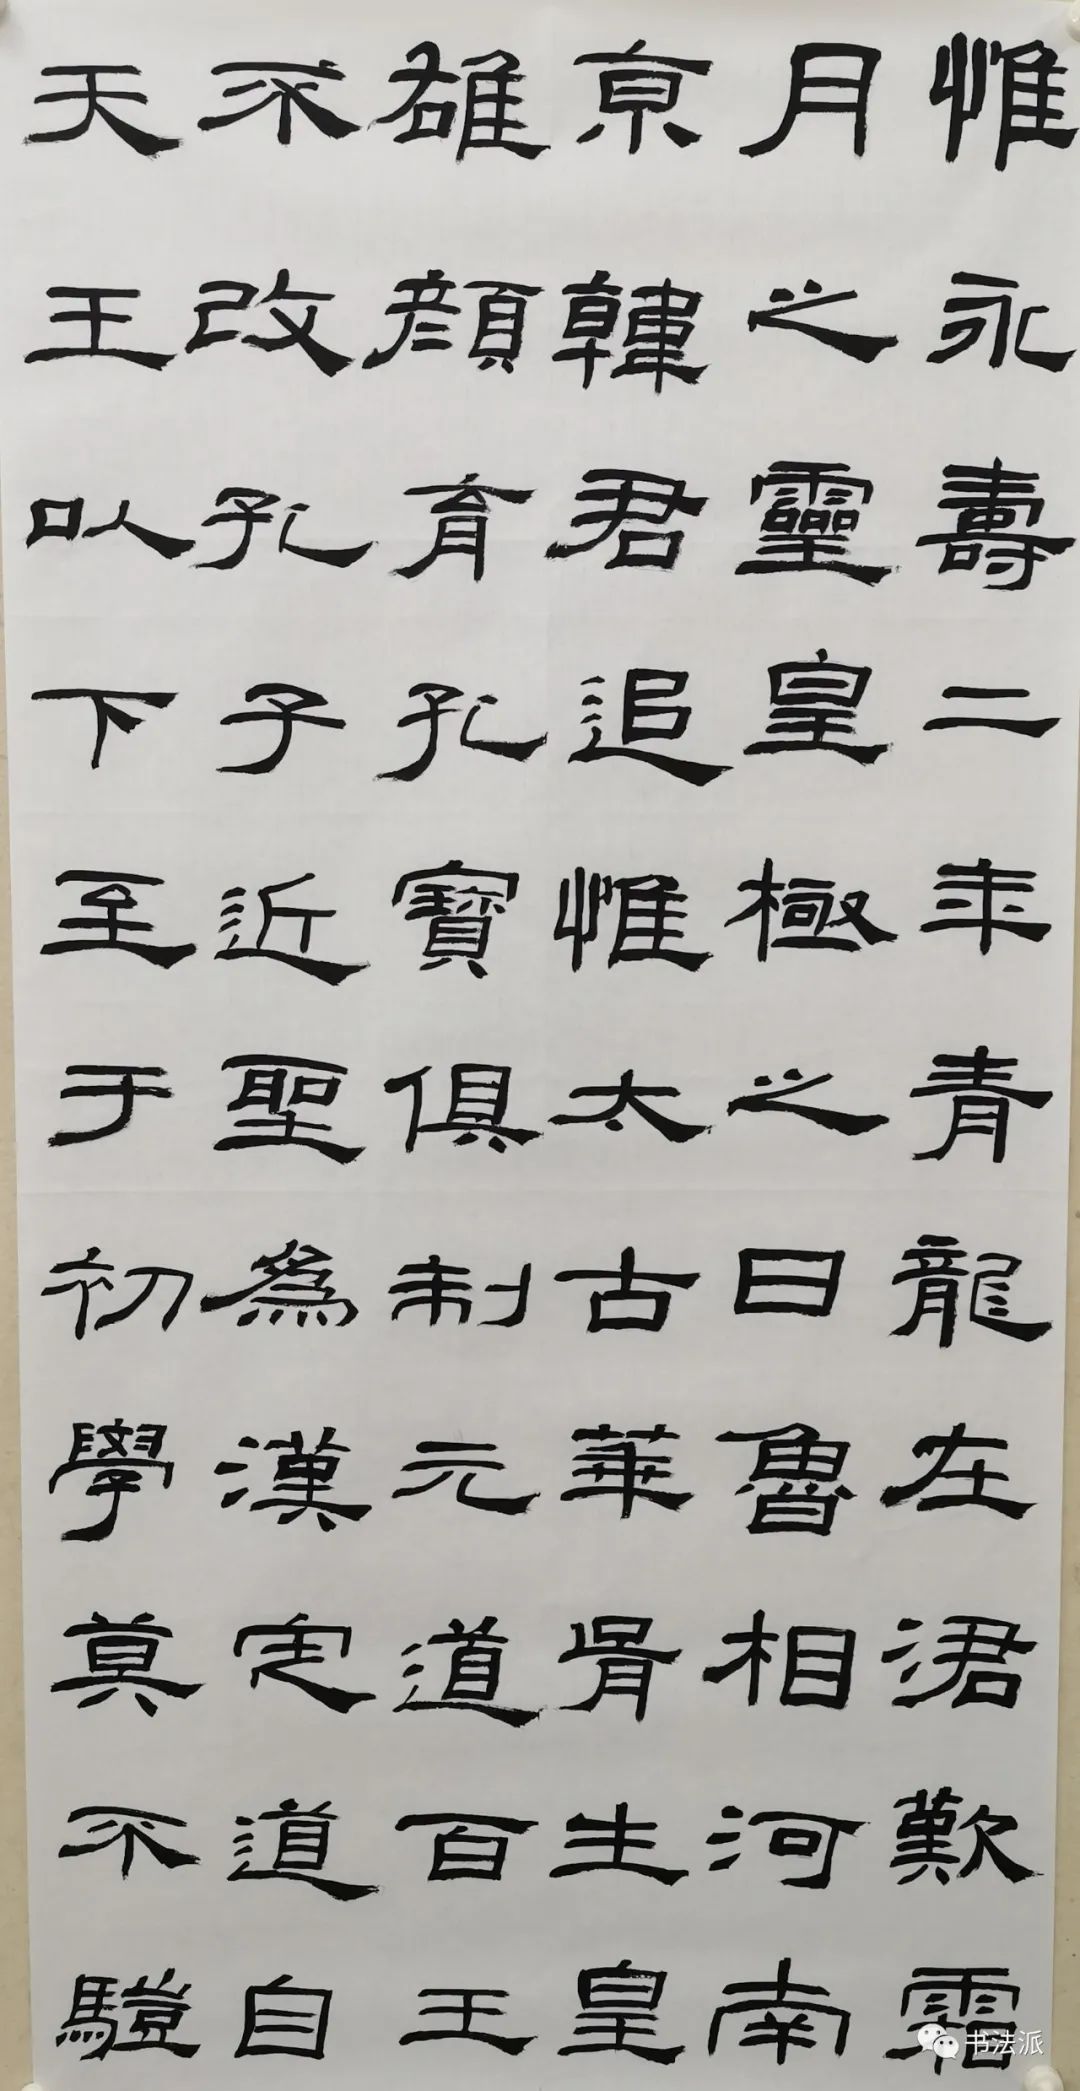 惟永壽二年青龍在涒歎霜
月之靈皇極之日魯相河南
京韓君追惟太古華胥生皇
雄顏育孔寶俱制元道百王
不改孔子近聖為漢定道自
天王以下至于初學莫不騹
书法派